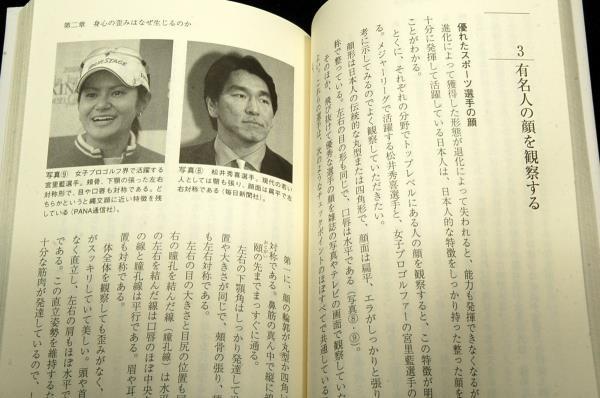 3 有名人の顔を観察する
優れたスポーツ選手の顔
進化によって獲得した形態が退化によって失われると、能力も発揮できなくなるが
十分に発揮して活躍している日本人は、日本人的な特徴をしっかり持った整った顔を
ことがわかる。
とくに、それぞれの分野でトップレベルにある人の顔を観察すると、この特徴が明
る。メジャーリーグで活躍する松井秀喜選手と、女子プロゴルファーの宮里藍選手の
考に示してみるのでよく観察していただきたい。
顔形は日本人の伝統的な丸型または四角形で、顔面は扁平、エラがしっかりと張り
称で整っている。左右の目の形も同じで、口唇は水平である(写真⑧・⑨)。
そのほか、飛び抜けて優秀な選手の顔を雑誌の写真やテレビの画面で観察していた
第二章 身心の歪みはなぜ生じるのか
STAGE
写真⑧ 松井秀喜選手。現代の若い
人としては顎も張り、顔面は扁平で左
右対称である(毎日新聞社)。
写真⑨ 女子プロゴルフ界で活躍する
宮里藍選手。頬骨、下顎の張った左右
対称形で、目や口唇も対称である。ど
ちらかというと縄文顔に近い特徴を残
している(PANA通信社)。
第一に、顔の輪郭が丸型か四角
対称である。鼻筋の真ん中で縦に線
頤の先までまっすぐに通る。
左右の下顎角はしっかり発達して
置や大きさが同じで、頬骨の張り、
も左右対称である。
左右の目の大きさと目尻の位置も同
右の瞳孔を結んだ線(瞳孔線)は水
の左右を結んだ線は口唇のほぼ中央
の線と瞳孔線は平行である。眉や耳
置も対称である。
体全体を観察しても歪みがなく、
がスッキリしていて美しい。頭や首
なく直立し、左右の肩もほぼ水平で
である。この直立姿勢を維持するた
十分な筋肉が発達しているので、